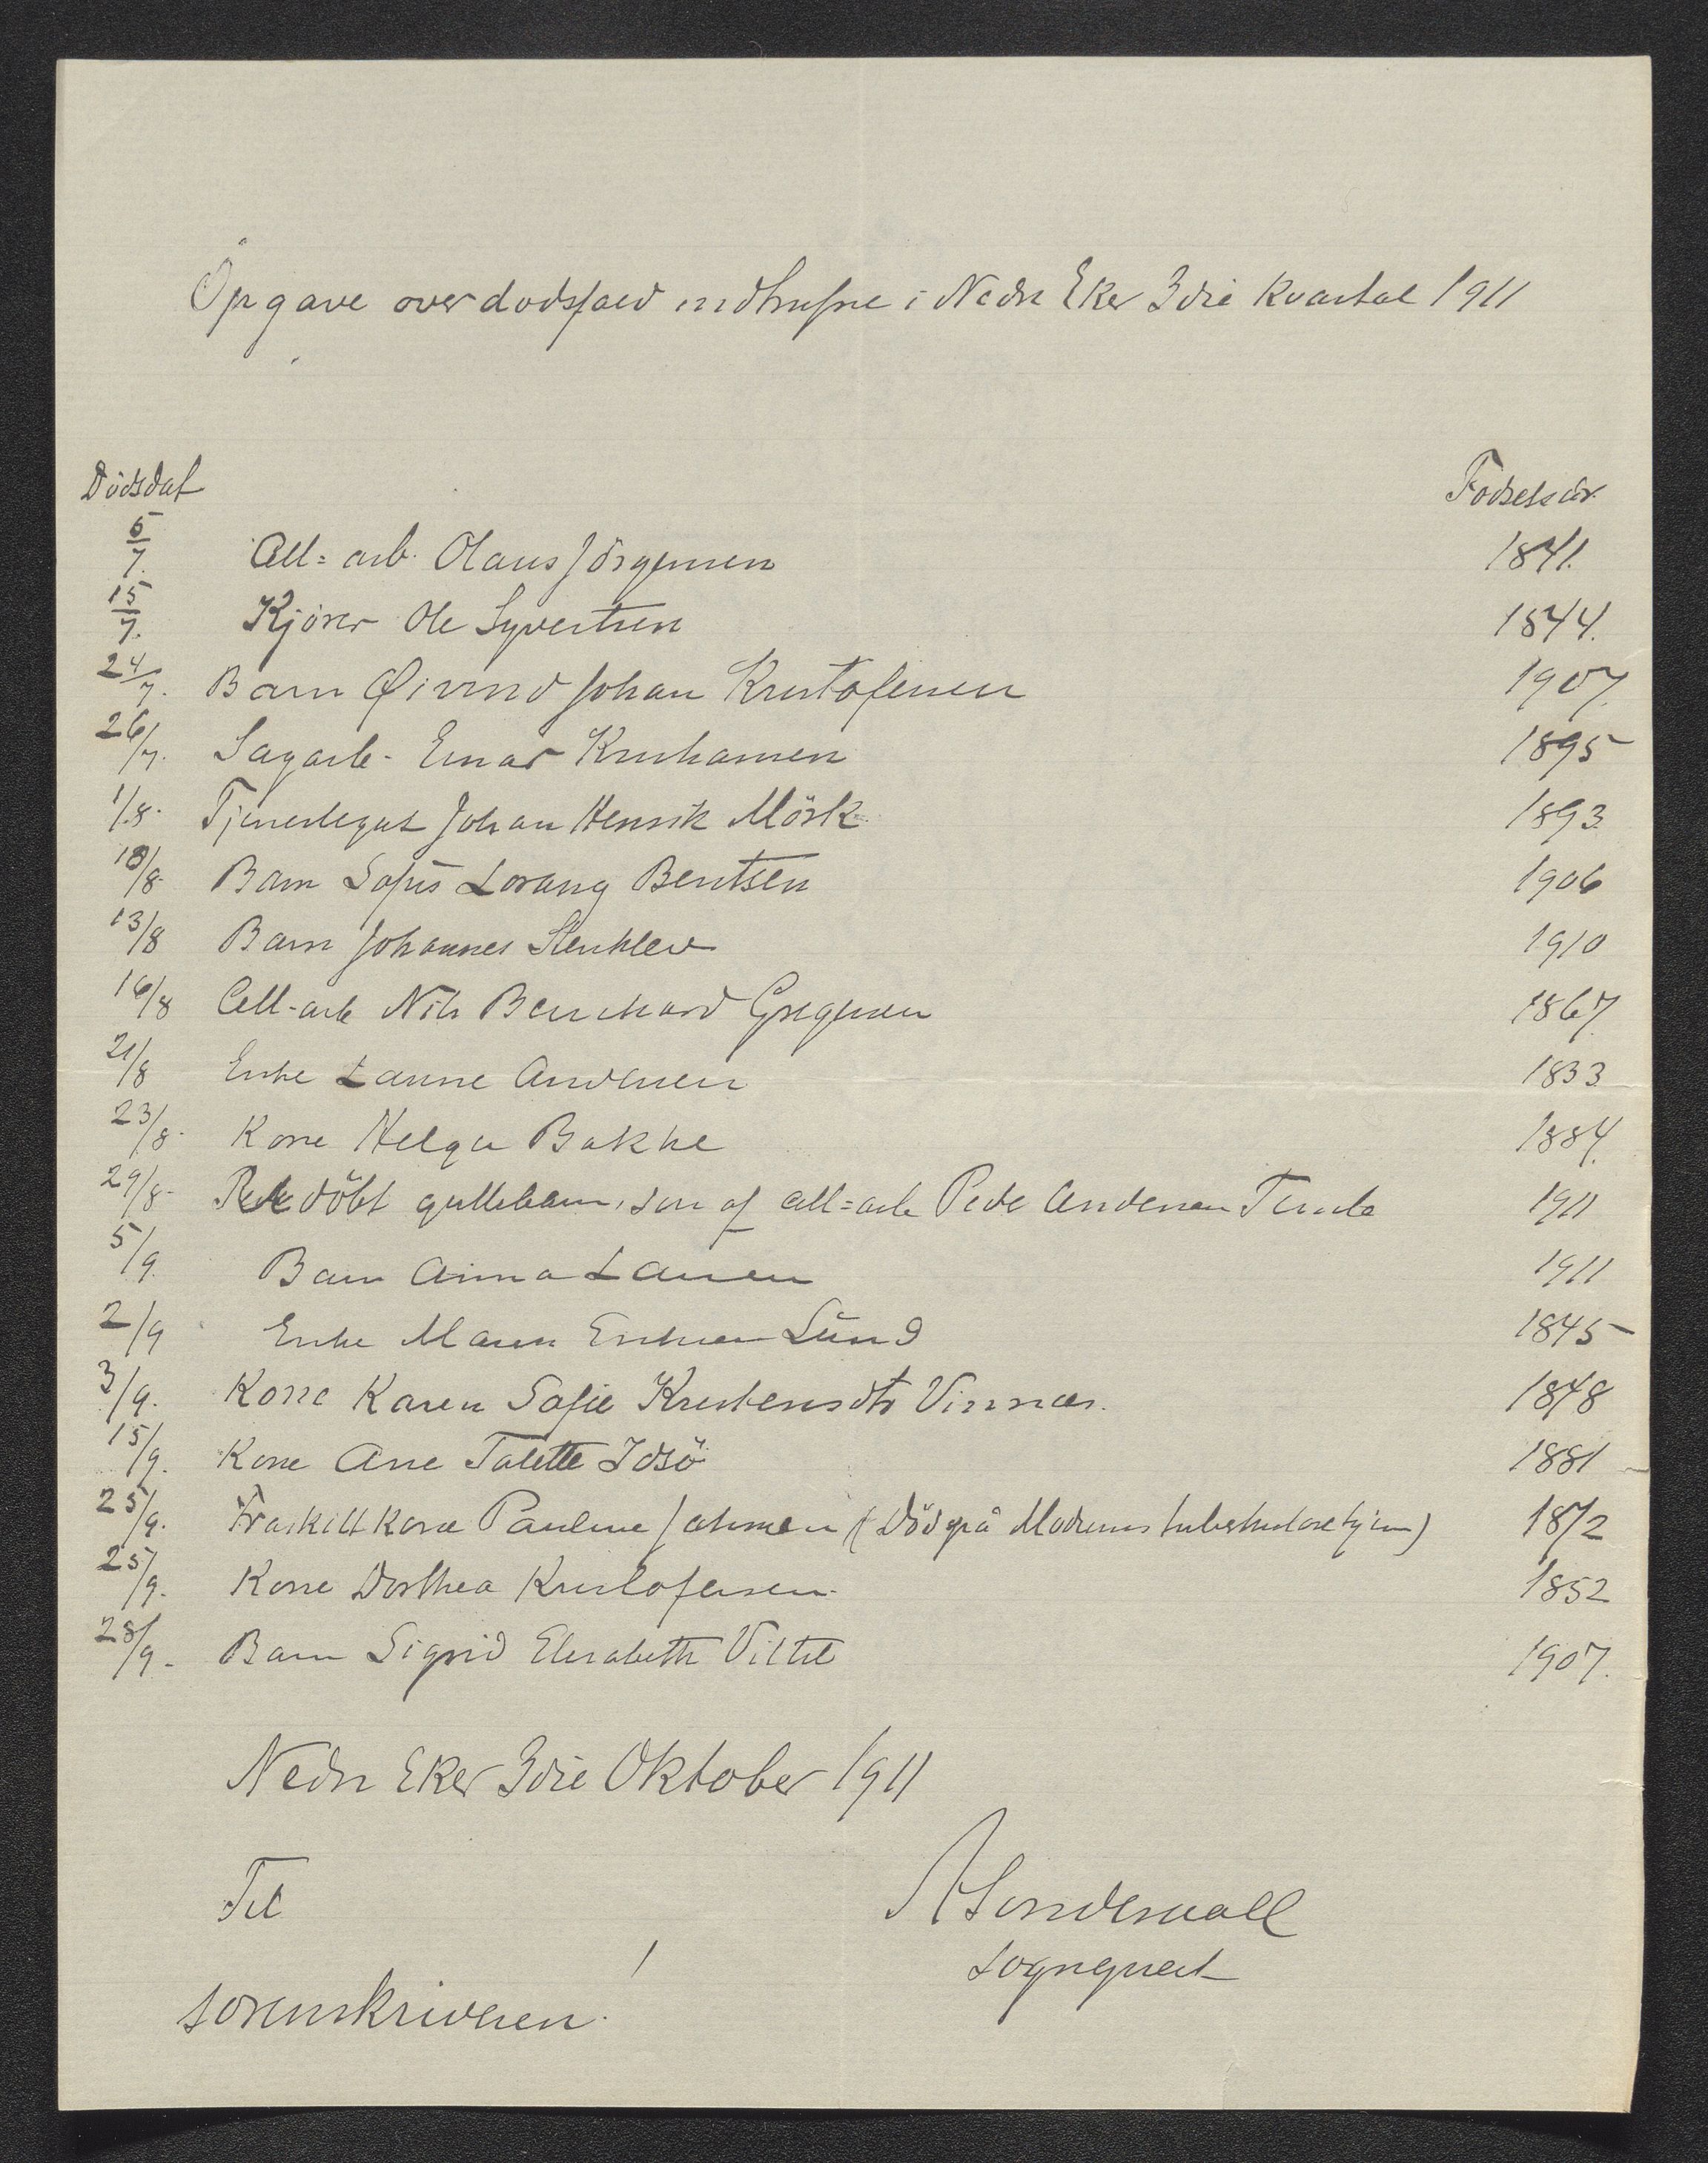 Opgave over dødsfald indtrufne i Nedre Eker 3die kvartal 1911
Dødsdat Fødselsår
5/7. Cell=arb. Olaus Jörgensen 1841.
15/7. Kjører Ole Syvertsen 1844.
24/7. Barn Øivind Johan Kristofersen 1907.
26/7. Sagarb- Einar Kristiansen 1895
1/8. Tjenestegut Johan Henrik Mörk 1893
18/8. Barn Sofus Lorang Bentsen 1906
13/8 Barn Johannes Stenklev 1910
16/8 Cell-arb Nils Bernhard Gregersen 1867.
21/8 Enke Laurine Andersen 1833
23/8. Kone Helga Bakke 1884.
29/8- döbt guttebarn, sön af cell=arb Peder Andersen 1911
5/9. Barn Anna Larsen 1911
2/9 Enke Maren Lund 1845
3/9. Kone Karen Sofie Kristensdtr Vinnæs. 1848
15/9. Kone Ane Talette Idsö 1881
25/9. Fraskilt kone Pauline Johnsen (Död på Modums tuberkulosehjem) 1872
25/9. Kone Dorthea Kristofersen. 1852
28/9- Barn Sigrid Elisabeth 1907.
Nedre Eker 3die Oktober 1911
Til
sogneprest
sorenskriveren.